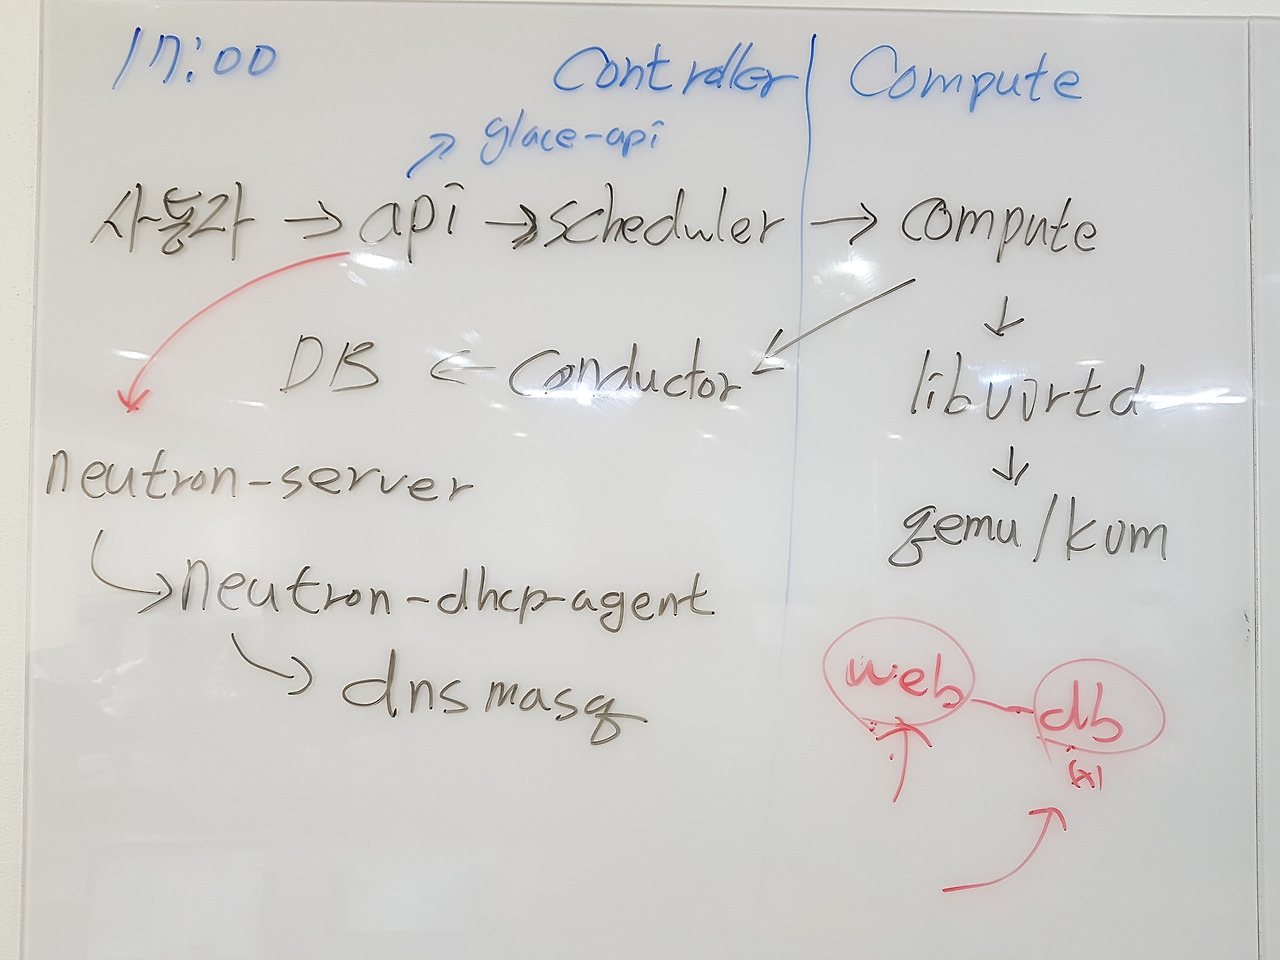 17:00 Controller | Compute
↗ glace-api
사용자 → api → scheduler → compute
DB ← Conductor ↙ ↓ libvirtd
↓
neutron-server qemu/kvm
↳ neutron-dhcp-agent
↘ dnsmasq web — db
(x)